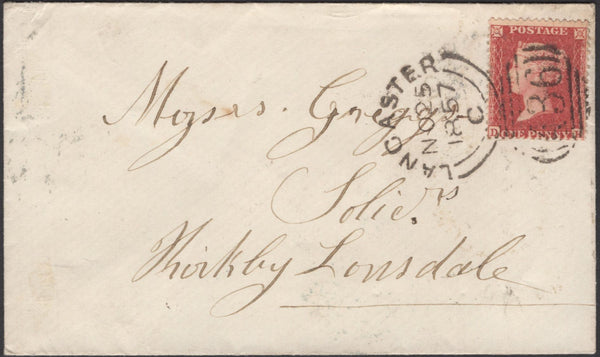 POSTAGE
LANCASTER
NO 25
1857
C
Messrs. Gregg
Solicrs
Kirkby Lonsdale